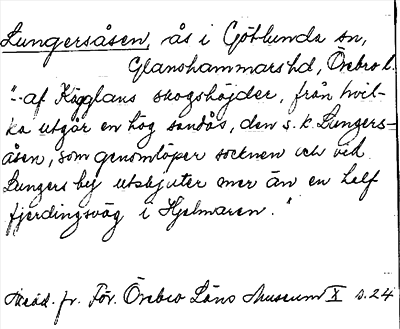 Lungersåsen, ås i Götlunda sn,
Glanshammars hd, Örebro l.
"-af Kägglans skogshöjder, från hvil-
ka utgår en hög sandås, den s. k. Lungers-
åsen, som genomlöper socknen och vid
Lungers by utskjuter mer än en half
fjerdingsväg i Hjelmaren."
Medd. fr. För. Örebro Läns Museum X s. 24